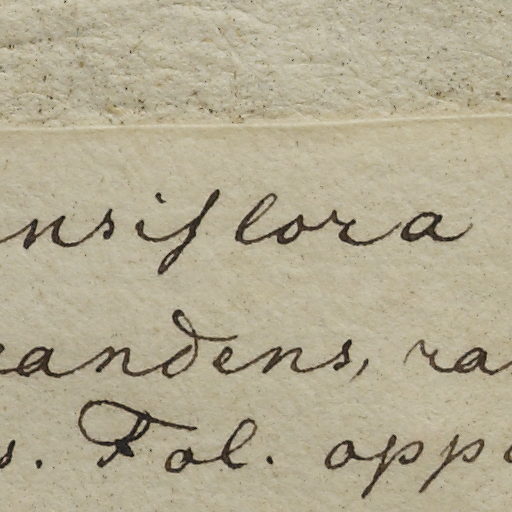 nsiflora
candens, ra
s. Fol. oppo